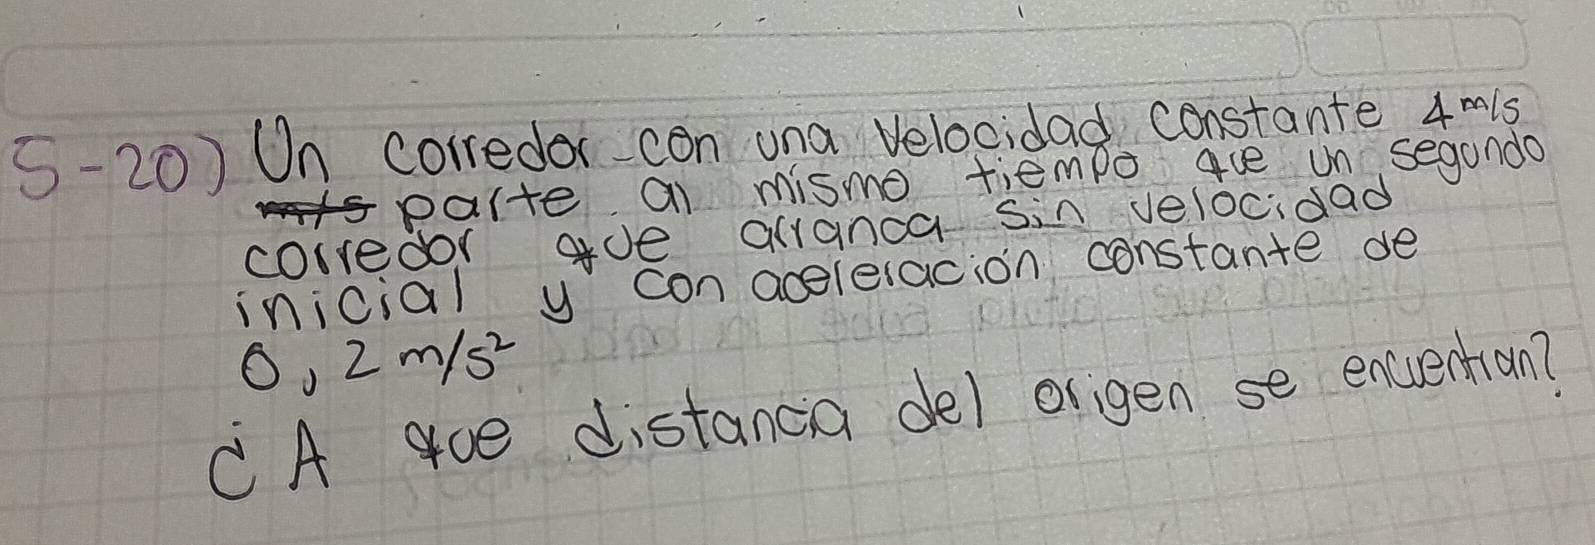 5-20) Un corredor con una velocidad constante 4 m/s
parte al mismo tiempo que un segundo
corredor que arranca sin velocidad
inicial y con aceleración constante de
0,2 m/s²
¿A que distancia del origen se encuentran?